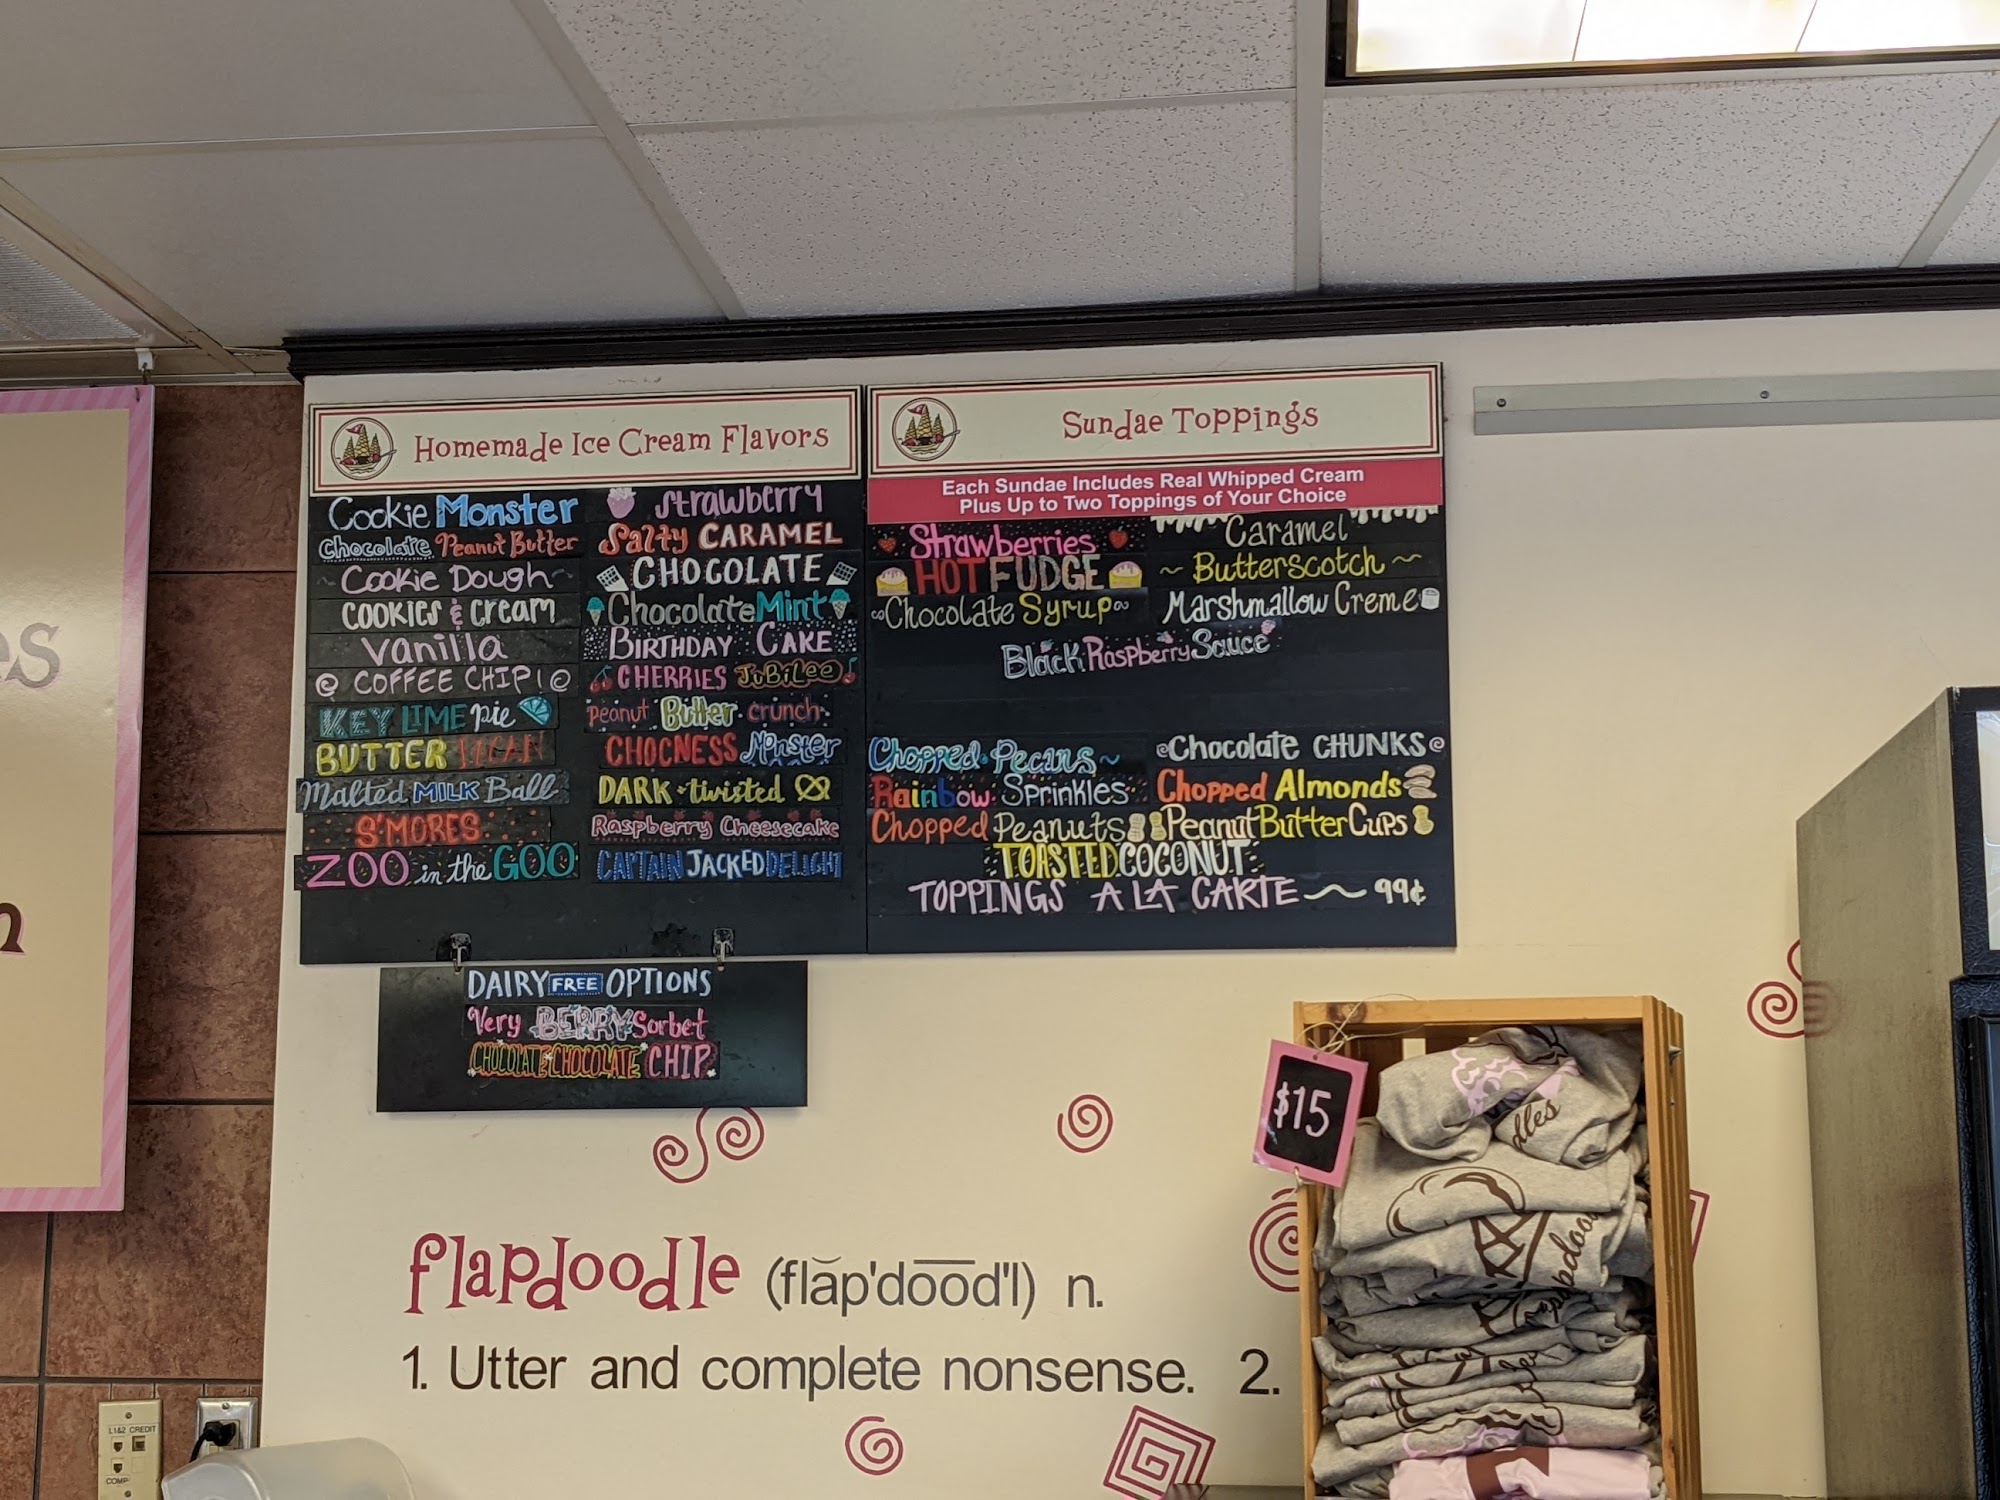 es
n
Homemade Ice Cream Flavors
Cookie Monster
Chocolate Peanut Butter
Cookie Dough
COOKIES & cream
Vanilla
COFFEE CHIP!
KEY LIME pie
BUTTER PECAN
Malted MILK Ball
S'MORES
ZOO in the GOO
Strawberry
Salty CARAMEL
CHOCOLATE
Chocolate Mint
BIRTHDAY CAKE
CHERRIES JUBiLee
Peanut Butter crunch
CHOCNESS Monster
DARK twisted
Raspberry Cheesecake
CAPTAIN JACKED DELIGHT
DAIRY FREE OPTIONS
Very BERRY Sorbet
CHOCOLATE CHOCOLATE CHIP
Sundae Toppings
Each Sundae Includes Real Whipped Cream
Plus Up to Two Toppings of Your Choice
Strawberries
HOT FUDGE
Chocolate Syrup
Caramel
~ Butterscotch ~
Marshmallow Creme
Black Raspberry Sauce
Chopped Pecans ~
Rainbow Sprinkles
Chopped Peanuts
Chocolate CHUNKS
Chopped Almonds
Peanut Butter Cups
TOASTED COCONUT
TOPPINGS A LA CARTE ~ 99¢
$15
dles
flapdoodle (flăp'do͞od'l) n.
1. Utter and complete nonsense. 2.
L1&2 CREDIT
COMP